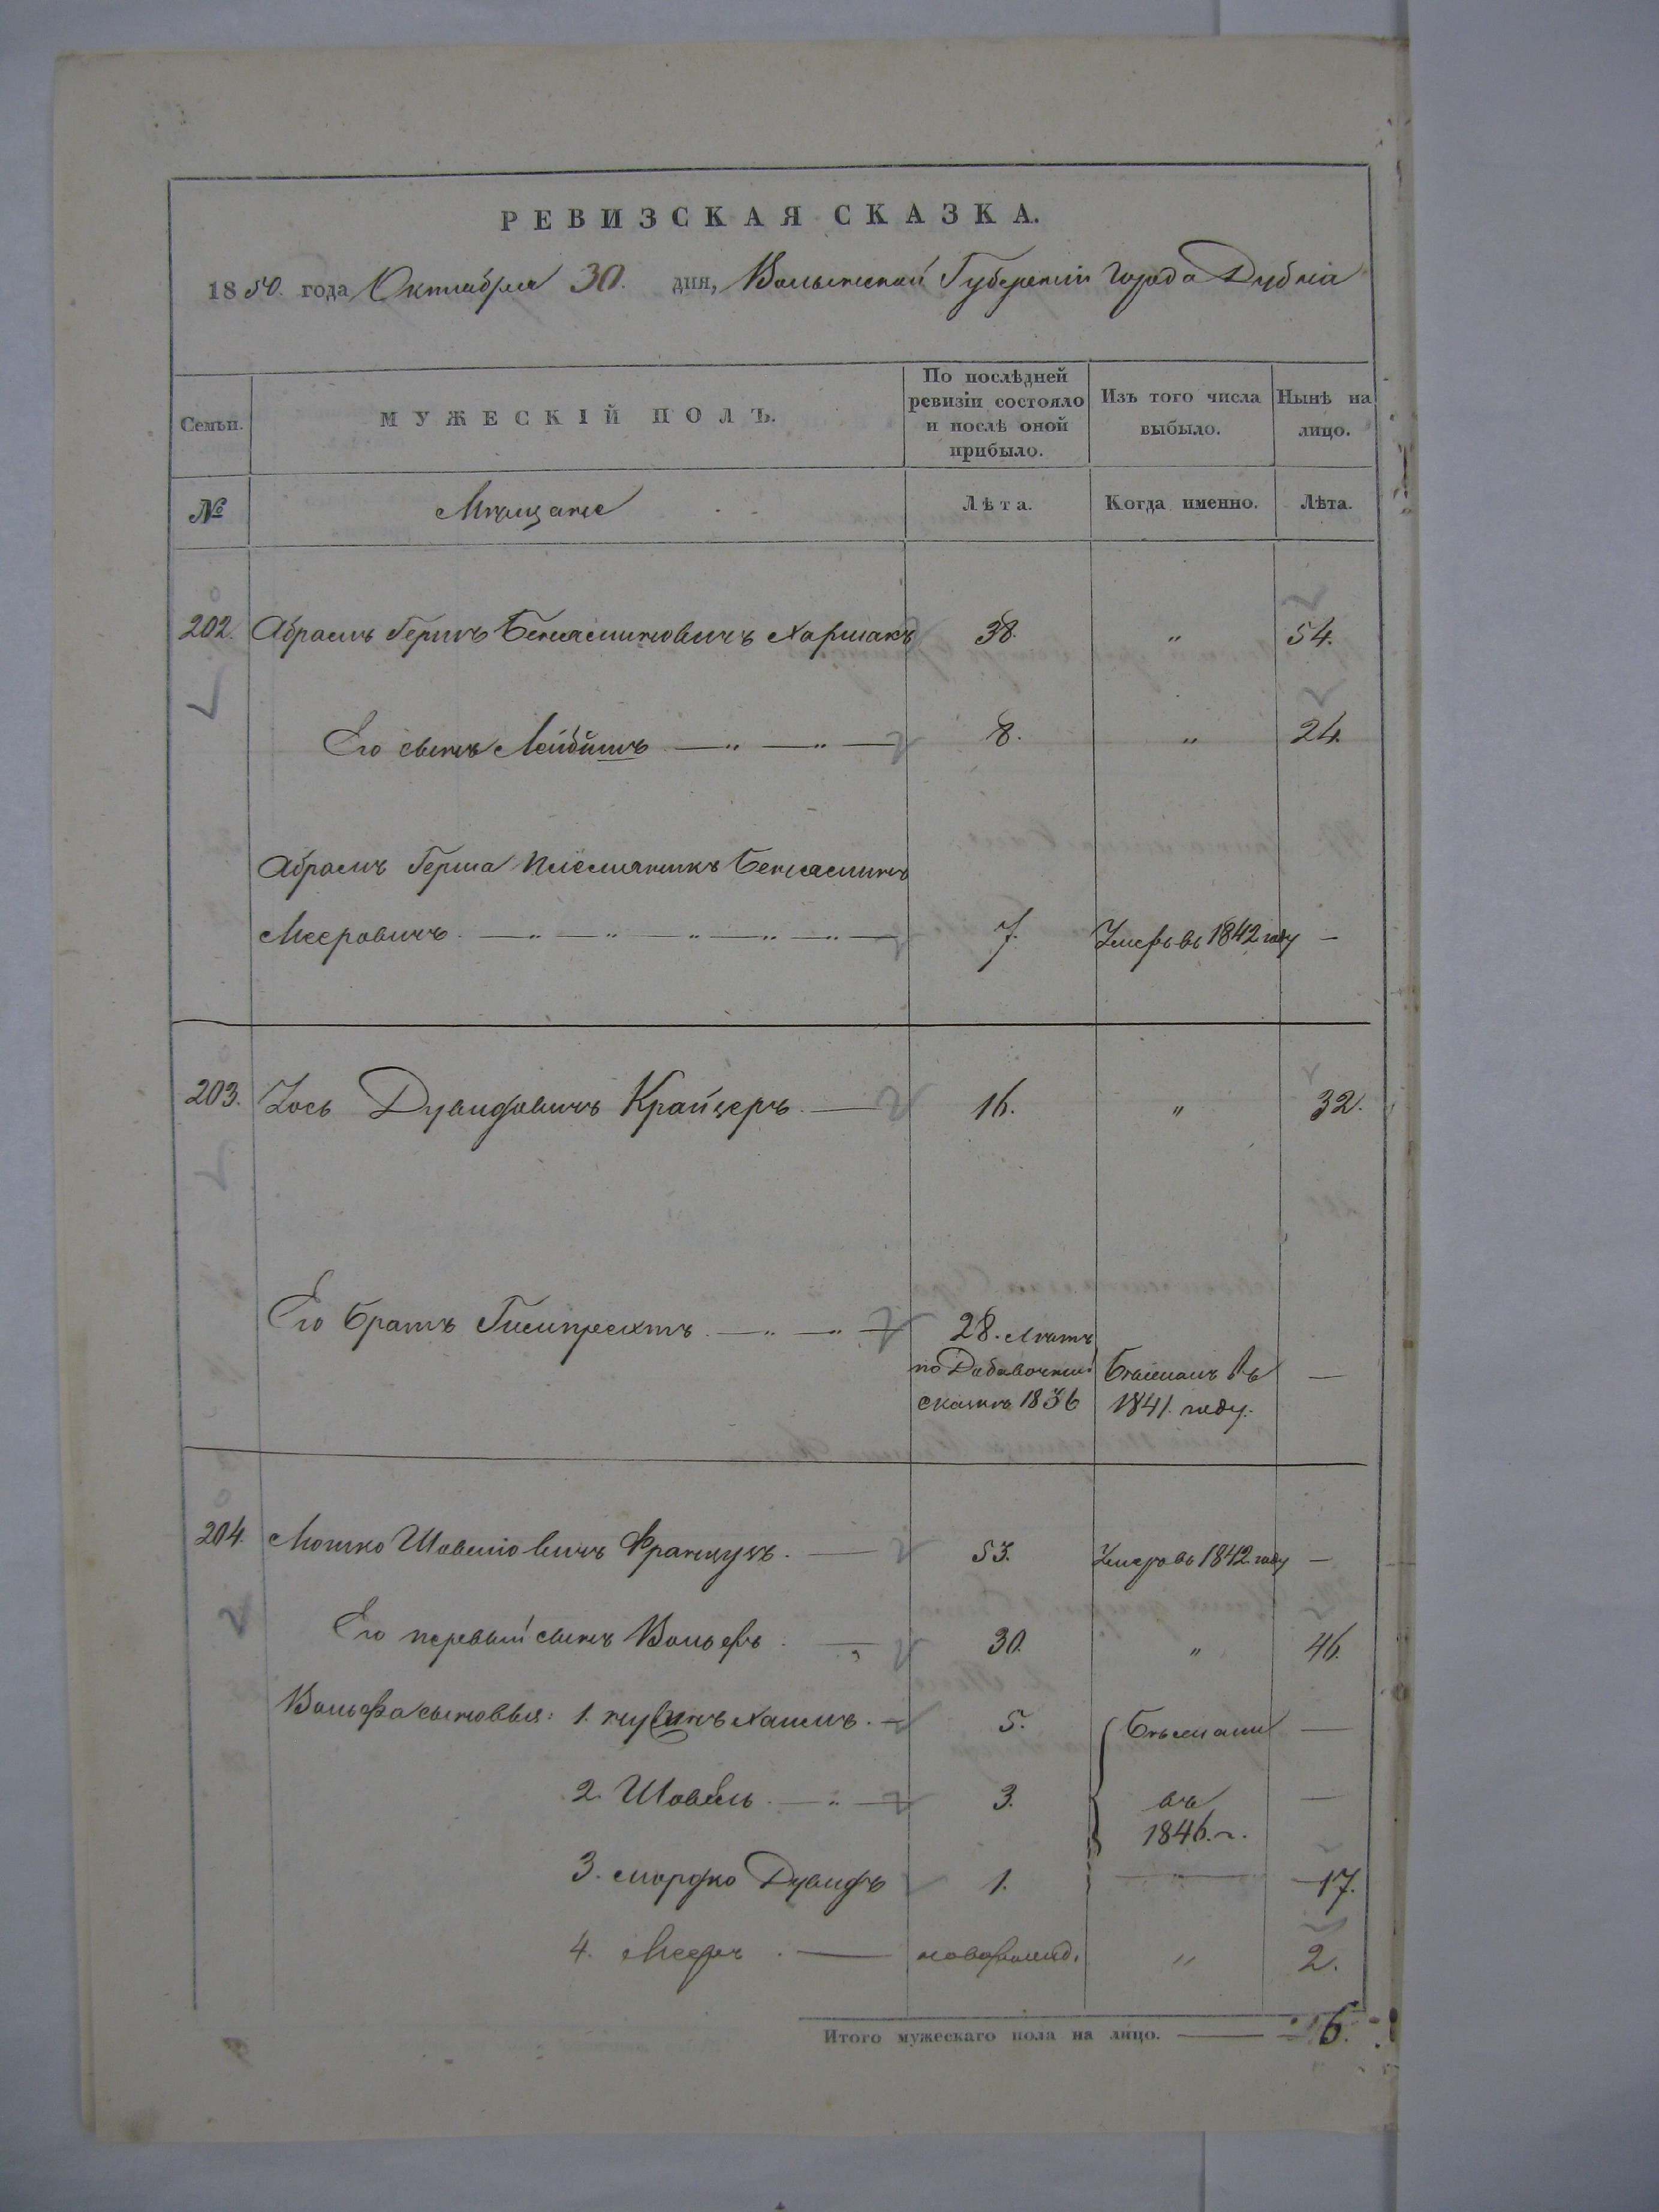 РЕВИЗСКАЯ СКАЗКА.
1850. года Октября 30. дня, Волынской Губерніи Города Дубна
Семьи. МУЖЕСКІЙ ПОЛЪ. По послѣдней ревизіи состояло и послѣ оной прибыло. Изъ того числа выбыло. Нынѣ на лицо.
№ Мѣщане Лѣта. Когда именно. Лѣта.
202. Абрамъ Гершъ Беньяминовичъ Харшакъ 38. " 54.
Его сынъ Лейбишъ — " — " — 8. " 24.
Абрамъ Герша племянникъ Беньяминъ
Мееровичъ. — " — " — " — " — " — 7. Умеръ въ 1842 году —
203. Іось Дувидовичъ Крайцеръ. — 16. " 32.
Его братъ — " — " — 28. лѣтъ
по Добавочной Бѣжалъ въ —
сказкѣ 1836 1841. году.
204. Мошко Шовліовичъ Французъ. — 53. Умеръ въ 1842 году —
Его первый сынъ Вольфъ. — 30. " 46.
Вольфа сыновья: 1. Нусинъ Хаимъ. — 5. Бѣжали —
2. Шовель — " — 3. въ —
1846. г.
3. Мордко Дувидъ 1. " 17.
4. Мееръ. — новорожд. " 2.
Итого мужескаго пола на лицо. — 6.